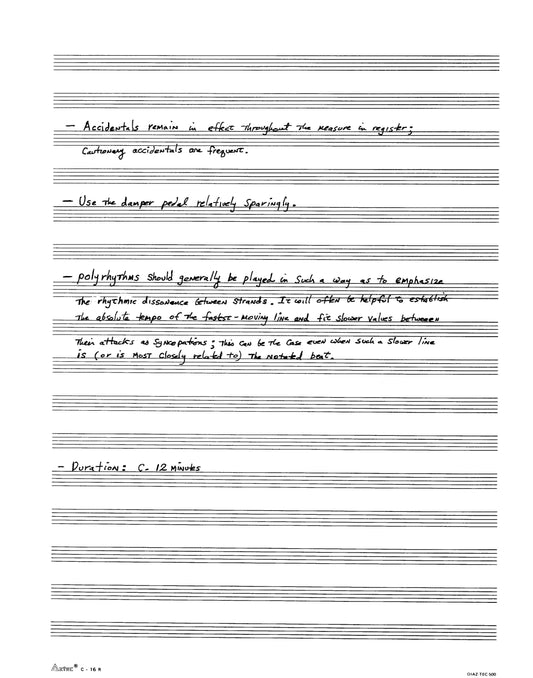 - Accidentals remain in effect throughout the measure in register;
Cautionary accidentals are frequent.
- Use the damper pedal relatively sparingly.
- Polyrhythms should generally be played in such a way as to emphasize
the rhythmic dissonance between strands. It will often be helpful to establish
the absolute tempo of the fastest-moving line and fit slower values between
their attacks as syncopations; this can be the case even when such a slower line
is (or is most closely related to) the notated beat.
- Duration: C. 12 minutes
AZTEC® C - 16 R
DIAZ-TEC 500